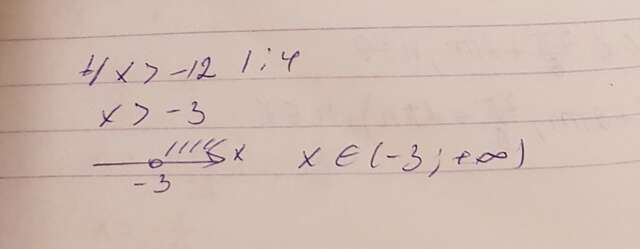 4x > -12 | : 4
x > -3
x
-3
x ∈ (-3; +∞)